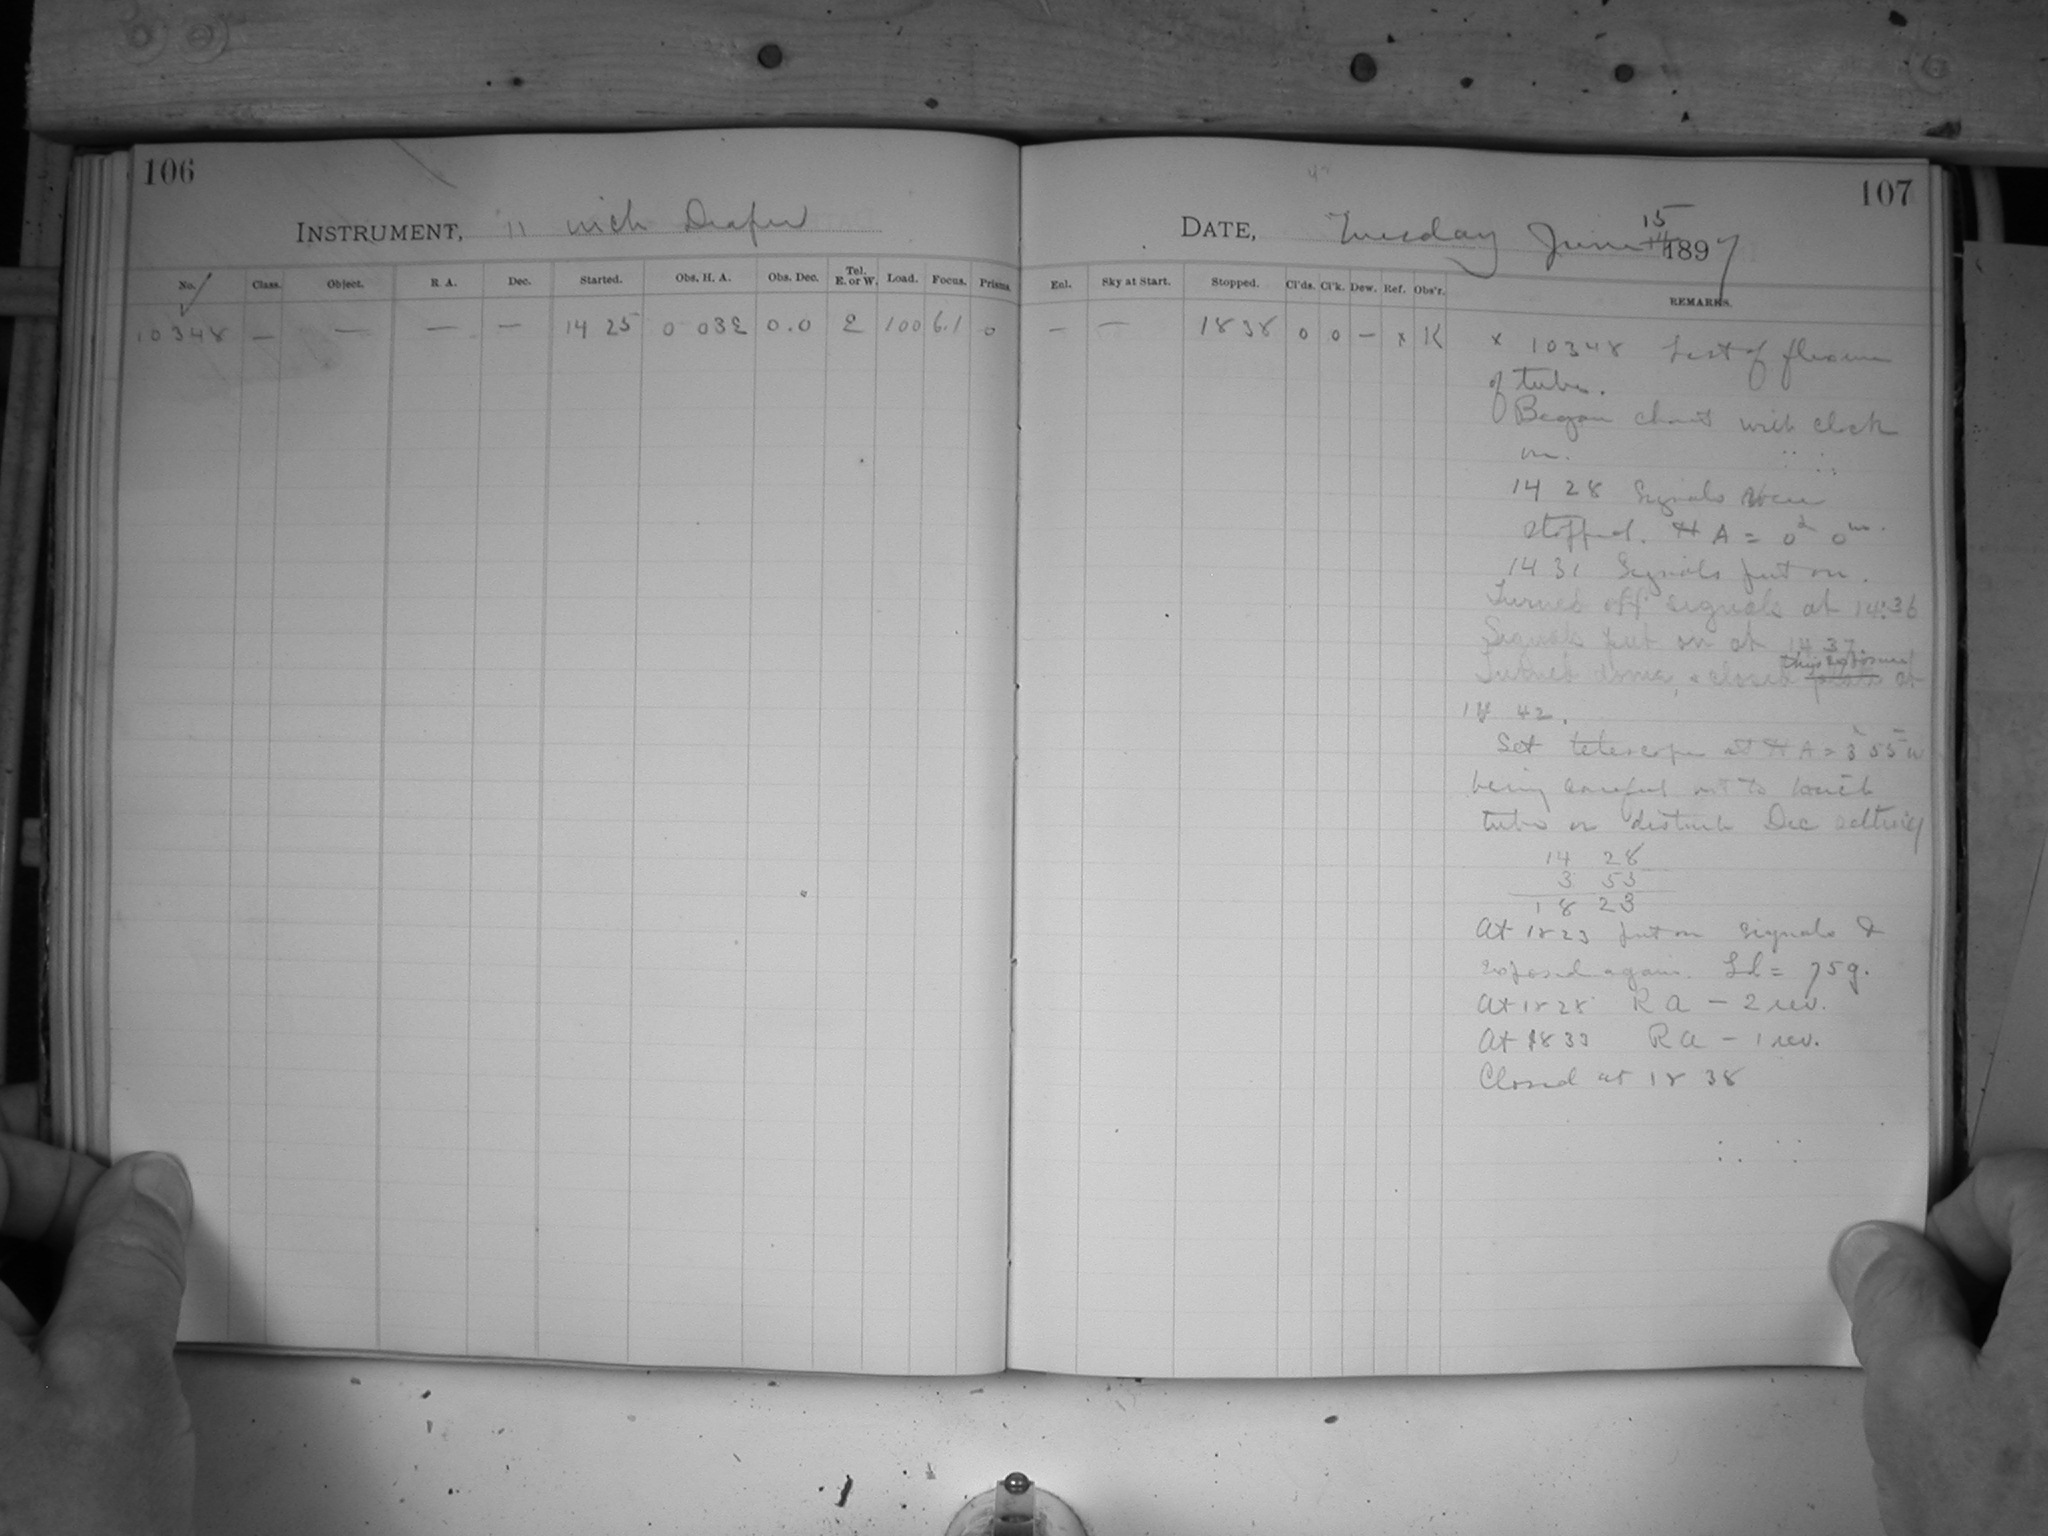 106
INSTRUMENT, 11 inch Draper
No. Class. Object. R.A. Dec. Started. Obs. H. A. Obs. Dec. Tel. E. or W. Load. Focus. Prisms.
10348 — — — — 14 25 0 03E 0.0 E 100 6.1 0
107
DATE, Tuesday June 15 1897
Enl. Sky at Start. Stopped. Cl'ds. Cl'k. Dew. Ref. Obs'r. REMARKS.
— — 18 38 0 0 — x K
x 10348 Test of flexure
of tube.
Began chart with clock
on.
14 28 Signals were
stopped. HA = 0h 0m.
14 31 Signals put on.
Turned off signals at 14:36
Signals put on at 14 37.
this exposure
Turned dome, & closed plate at
14 42.
Set telescope at HA = 3h 55m W
being careful not to touch
tube or disturb Dec setting
14 28
3 55
18 23
At 18 23 put on signals &
exposed again. Ld = 75g.
At 18 28 RA – 2 rev.
At 18 33 RA – 1 rev.
Closed at 18 38